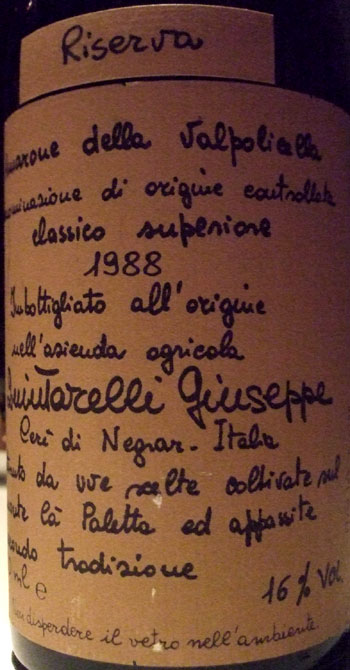 Riserva
Amarone della Valpolicella
denominazione di origine controllata
classico superiore
1988
Imbottigliato all'origine
nell'azienda agricola
Quintarelli Giuseppe
Cerè di Negrar - Italia
da uve scelte coltivate sul
monte Cà Paletta ed appassite
secondo tradizione
ml e
16% Vol.
non disperdere il vetro nell'ambiente.